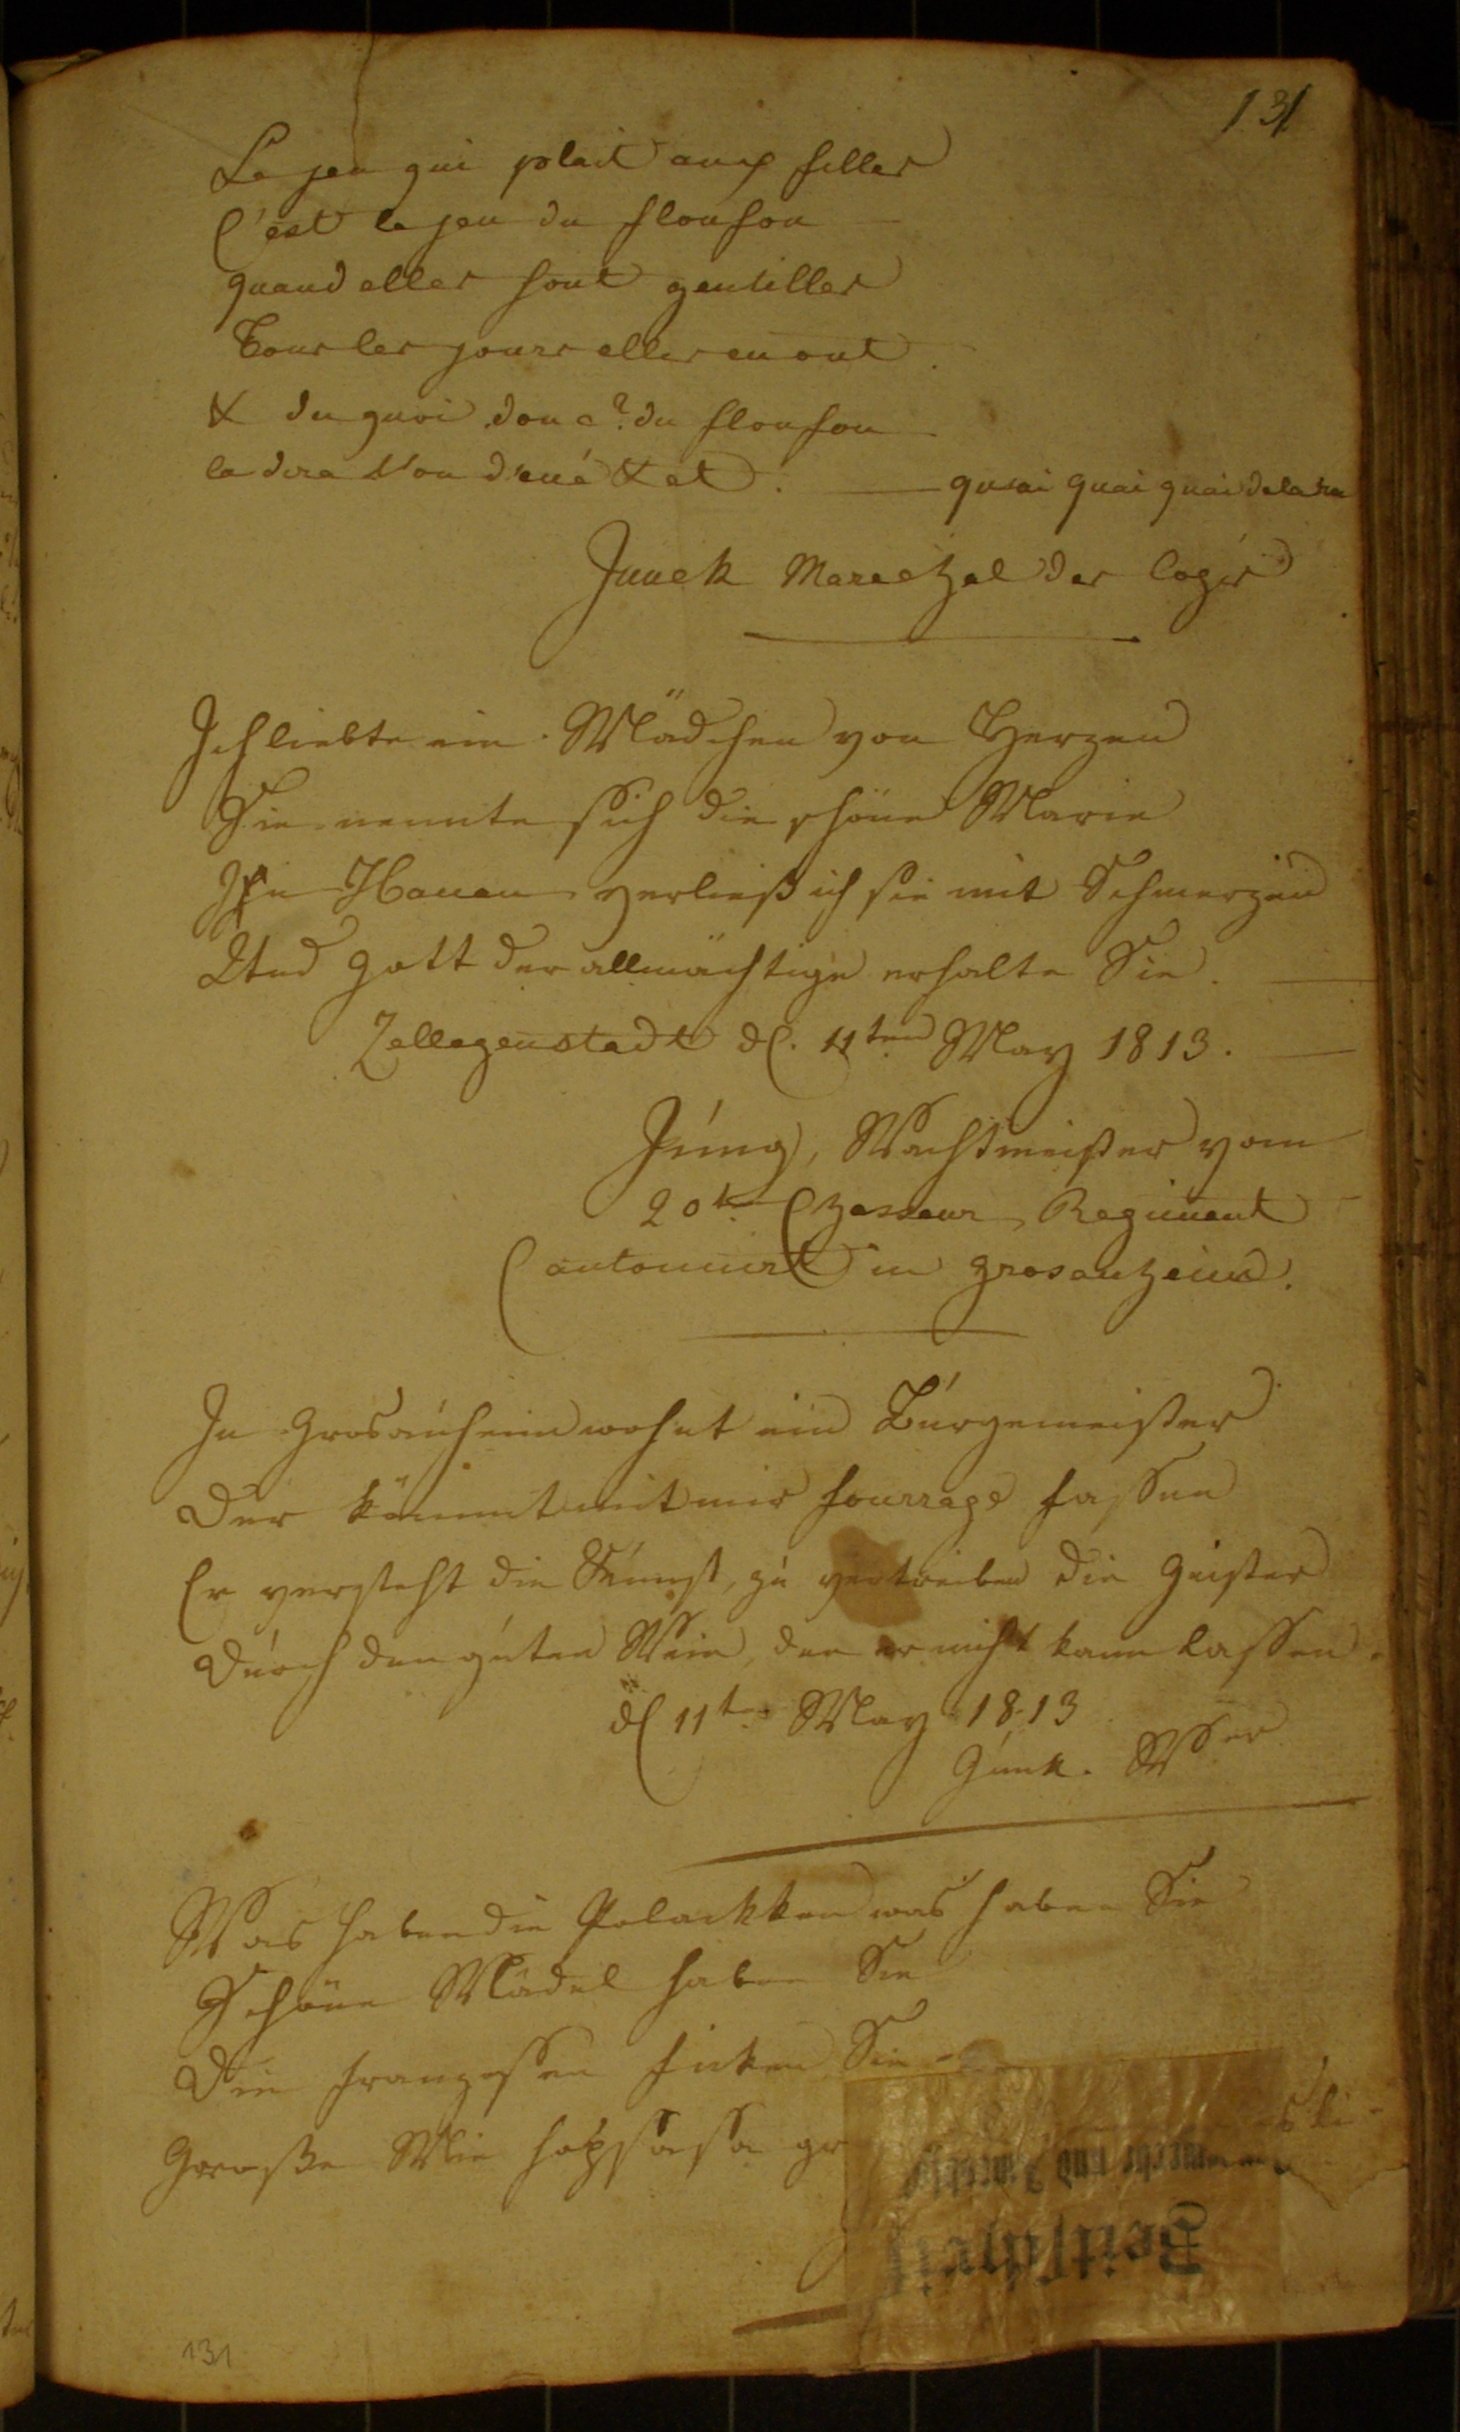 131
Le jeu qui plait aux filles
C'est le jeu du flonfon
quand elles sont gentilles
Tous les jours elles en ont.
& du quoi donc? du flonfon
la dera
quoi quai quai dela
Marechal des logis
Ich liebte ein Mädchen von Herzen
Sie nennte sich die schöne Marie
In Hanau verließ ich sie mit Schmerzen
Und Gott der allmächtige erhalte Sie.
Zellegenstadt d. 11ten May 1813.
Jung, Wachtmeister vom
20t. Chasseur Regiment
Cantonnirt in Grosauheim.
In Grosauheim wohnt ein Bürgemeister
Der kömmt mit mir fourrage fassen
Er versteht die Kunst, zu vertreiben die Geister
Durch den guten Wein, den er nicht kann lassen.
d 11t. May 1813
Was haben die Polackken was haben Sie
Schöne Mädel haben Sie
Die franzossen ficken Sie
Grosse Mie hopsasa
Zeitschri
131